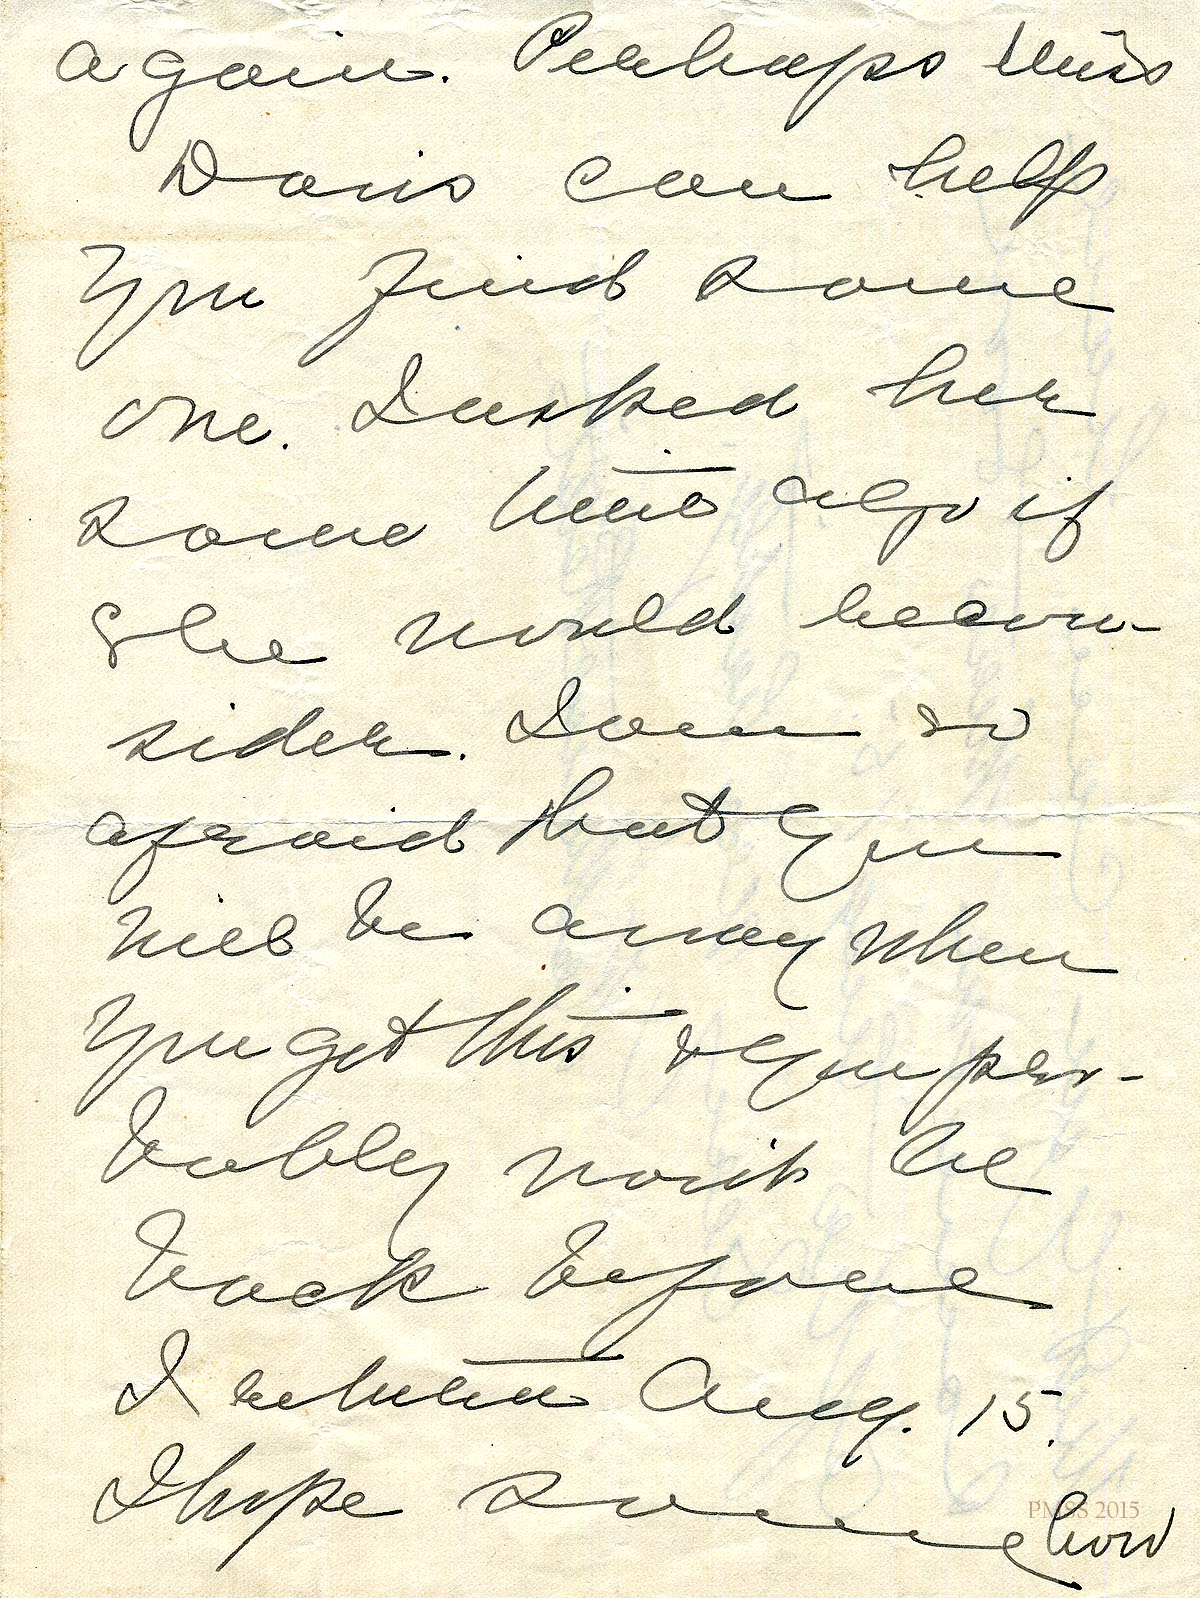 again. Perhaps Miss
Davis can help
you find some
one. I asked her
some time ago if
she would be con-
sider. I am so
afraid that you
will be away when
you get this & you pro-
bably won't be
back before
I return Aug. 15.
I hope somehow
PMSS 2015